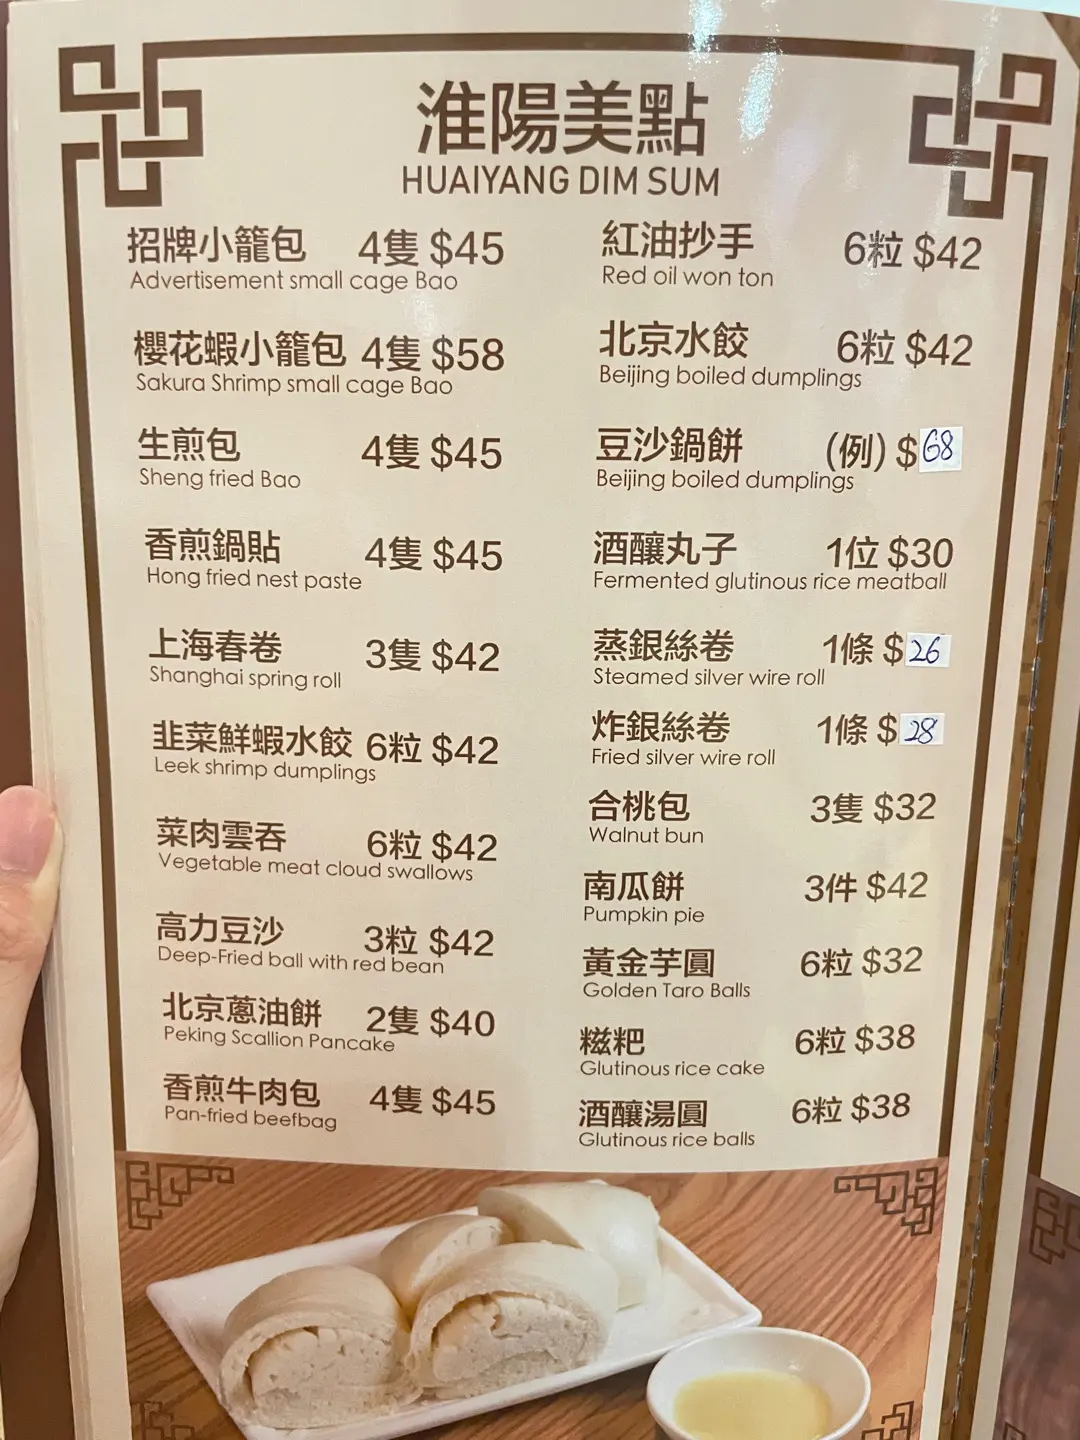 淮陽美點
HUAIYANG DIM SUM
招牌小籠包 4隻 $45
Advertisement small cage Bao
櫻花蝦小籠包 4隻 $58
Sakura Shrimp small cage Bao
生煎包 4隻 $45
Sheng fried Bao
香煎鍋貼 4隻 $45
Hong fried nest paste
上海春卷 3隻 $42
Shanghai spring roll
韭菜鮮蝦水餃 6粒 $42
Leek shrimp dumplings
菜肉雲吞 6粒 $42
Vegetable meat cloud swallows
高力豆沙 3粒 $42
Deep-Fried ball with red bean
北京蔥油餅 2隻 $40
Peking Scallion Pancake
香煎牛肉包 4隻 $45
Pan-fried beefbag
紅油抄手 6粒 $42
Red oil won ton
北京水餃 6粒 $42
Beijing boiled dumplings
豆沙鍋餅 (例) $68
Beijing boiled dumplings
酒釀丸子 1位 $30
Fermented glutinous rice meatball
蒸銀絲卷 1條 $26
Steamed silver wire roll
炸銀絲卷 1條 $28
Fried silver wire roll
合桃包 3隻 $32
Walnut bun
南瓜餅 3件 $42
Pumpkin pie
黃金芋圓 6粒 $32
Golden Taro Balls
糍粑 6粒 $38
Glutinous rice cake
酒釀湯圓 6粒 $38
Glutinous rice balls